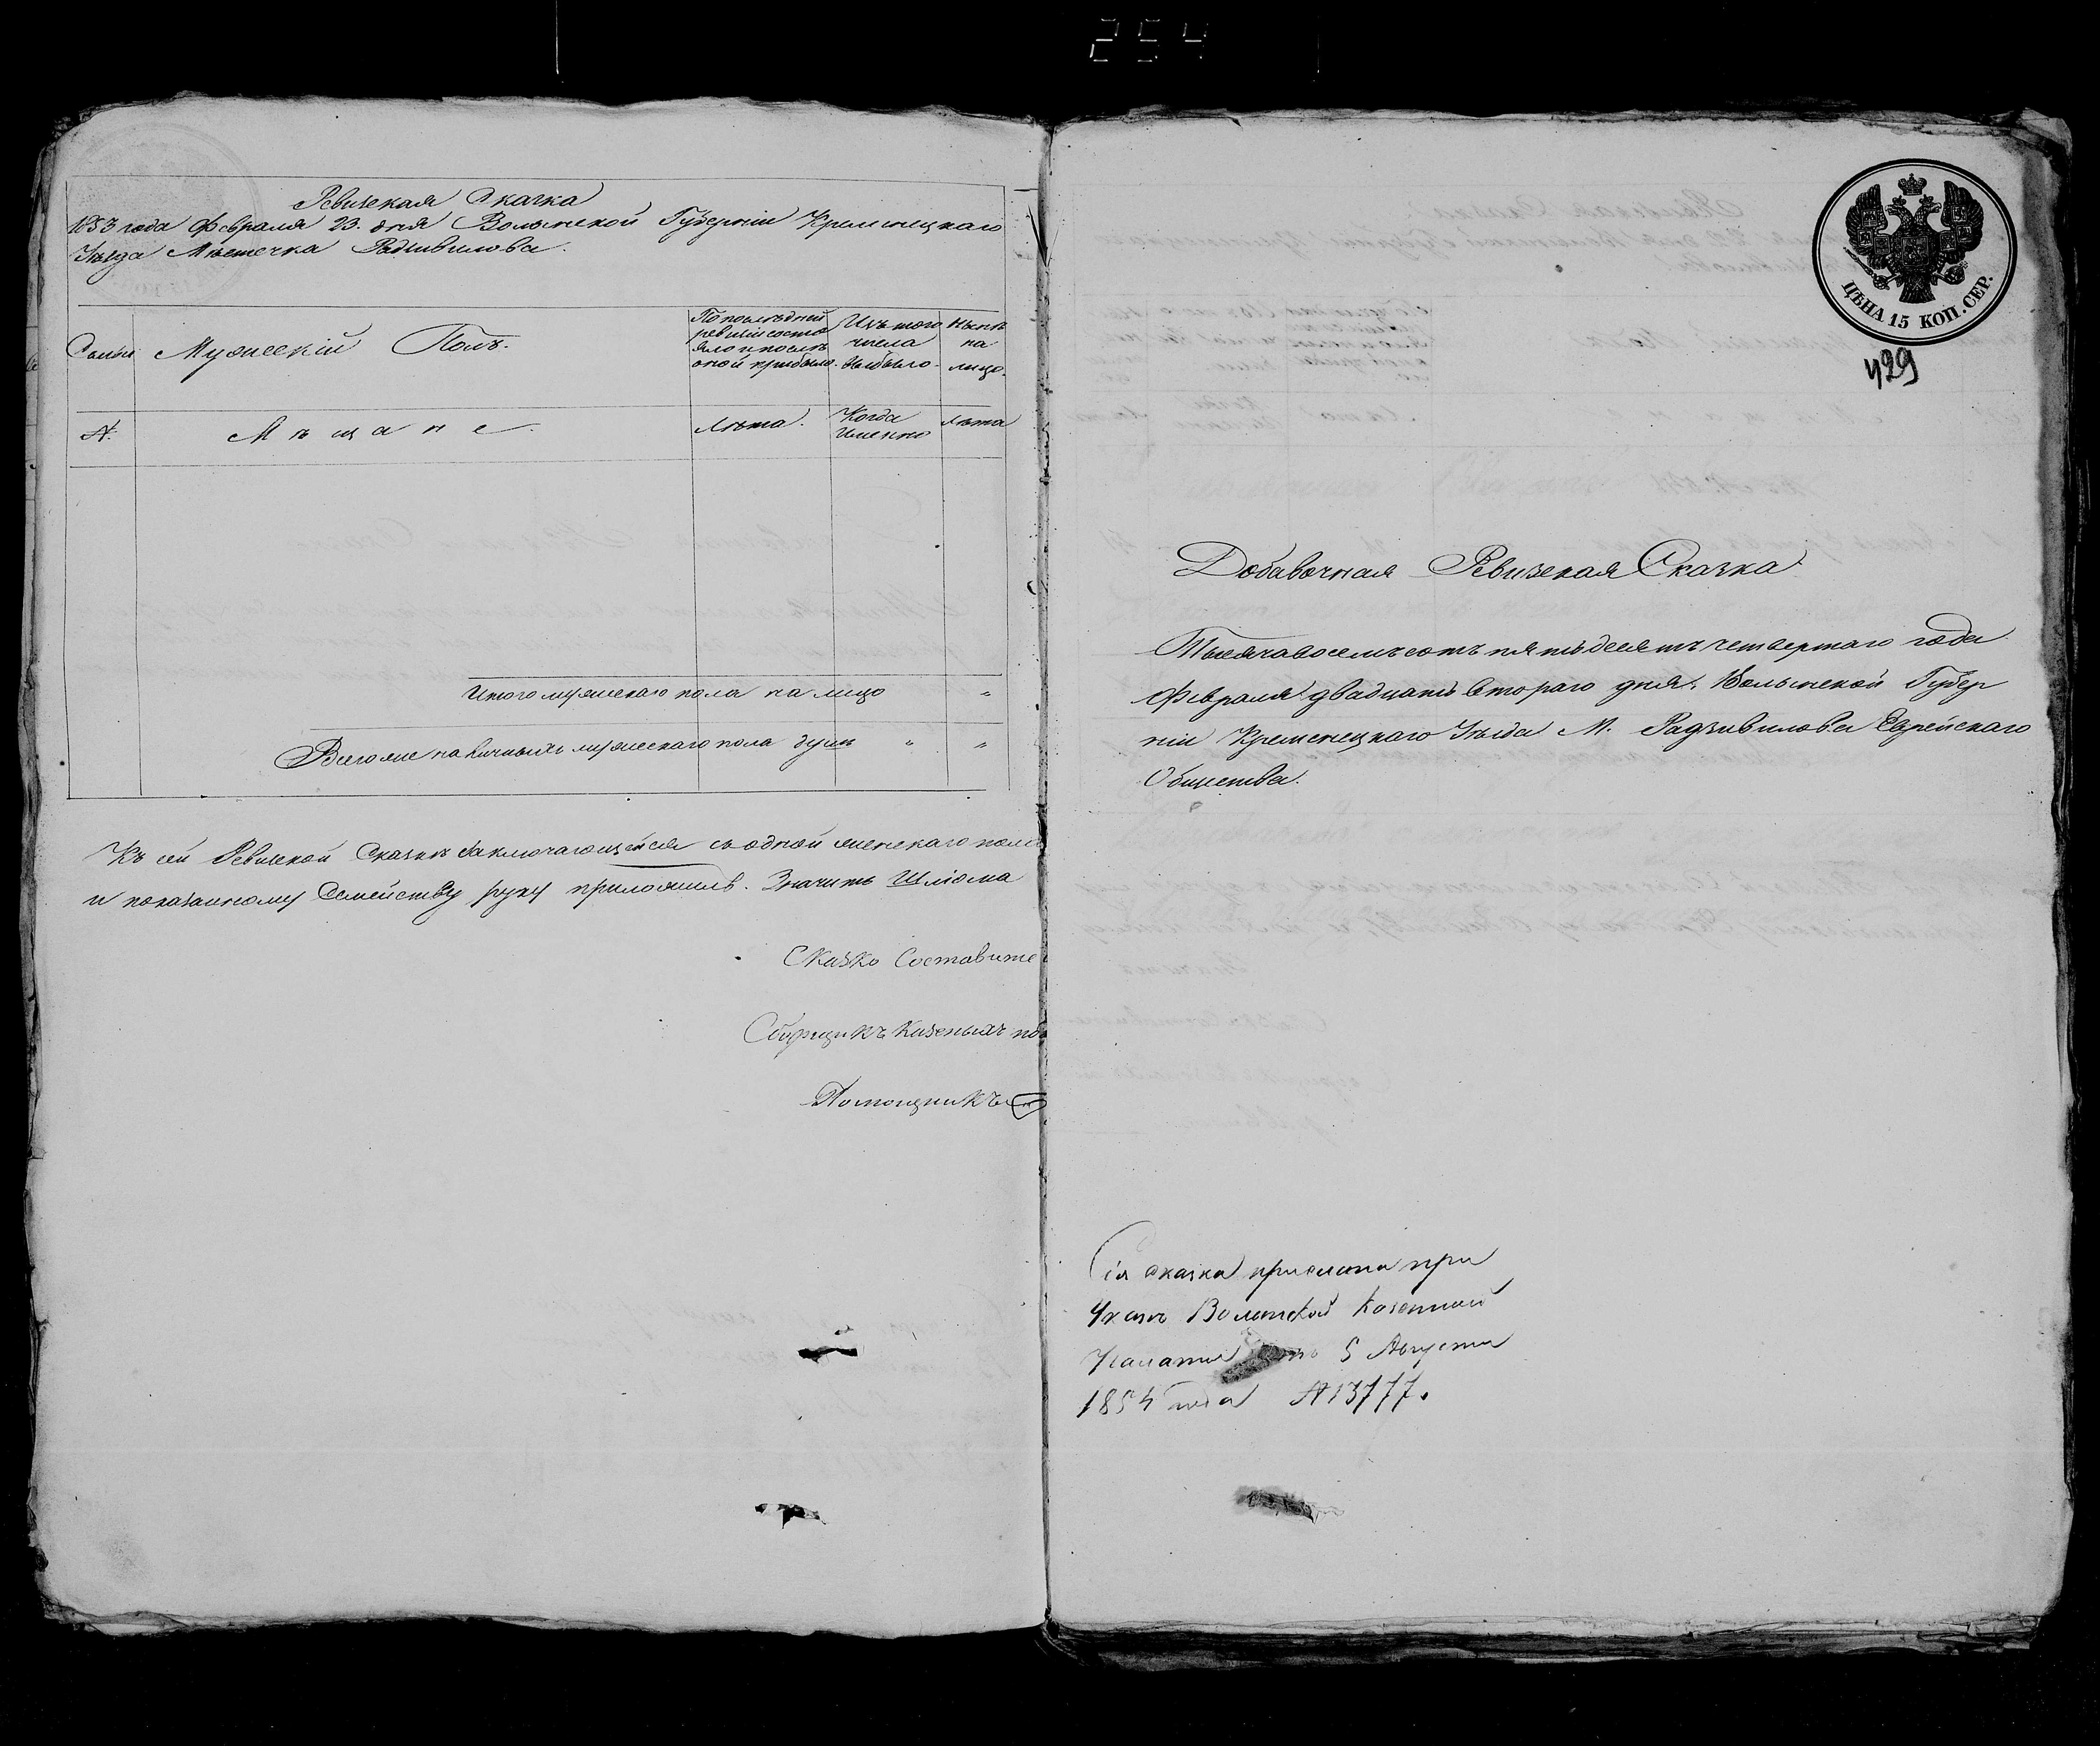 254
Ревизская Сказка
1853 года Февраля 23. дня Волынской Губернии Кременецкаго
Уезда Местечка Радзивилова.
Семьи
Мужескій Полъ.
По последней ревизіи состояло и после оной прибыло.
Изъ того числа выбыло.
Ныне на лицо.
№.
Мещане.
Лета.
Когда Именно
Лета
Итого мужескаго пола на лицо "
Всего же наличныхъ мужескаго пола душъ " "
Къ сей Ревизской Сказкъ заключающейся съ одной женскаго пола
и показанному Семейству руку приложилъ. Значитъ Шліома
Сказко Составите
Сборщикъ Казеныхъ по
Помощникъ
ЦѢНА 15 КОП. СЕР.
429
Добавочная Ревизская Сказка
Тысяча восемъсотъ пятьдесятъ четвертаго года
Февраля двадцать втораго дня. Волынской Губер
ніи Кременецкаго Уѣзда М. Радзивилова Еврейскаго
Общества.
Сія сказка прислана при
Указѣ Волынской Казенной
Палаты отъ 5 Августа
1854 года №13777.